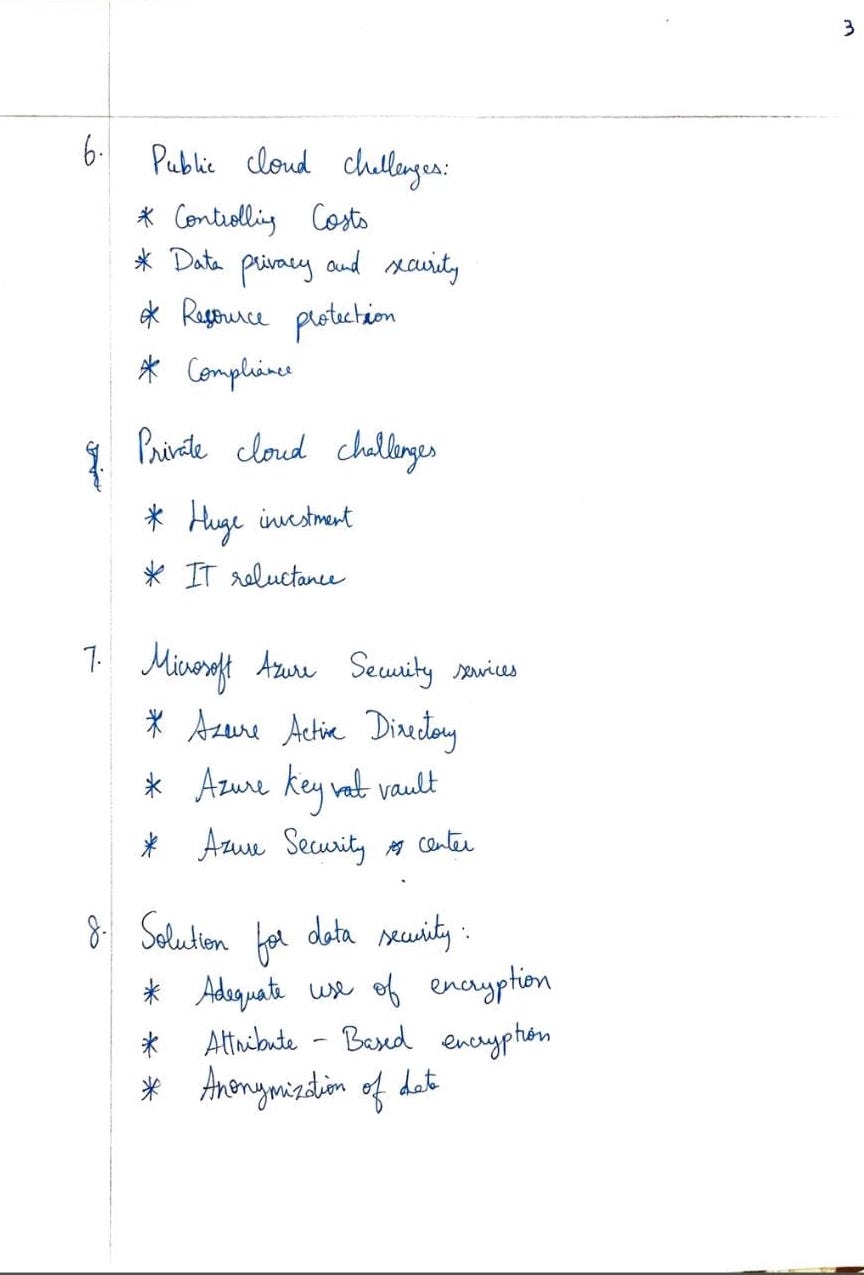 3
6. Public cloud challenges:
* Controlling Costs
* Data privacy and security
* Resource protection
* Compliance
Private cloud challenges
* Huge investment
* IT reluctance
7. Microsoft Azure Security services
* Azure Active Directory
* Azure key vault
* Azure Security center
8. Solution for data security:
* Adequate use of encryption
* Attribute - Based encryption
* Anonymization of data